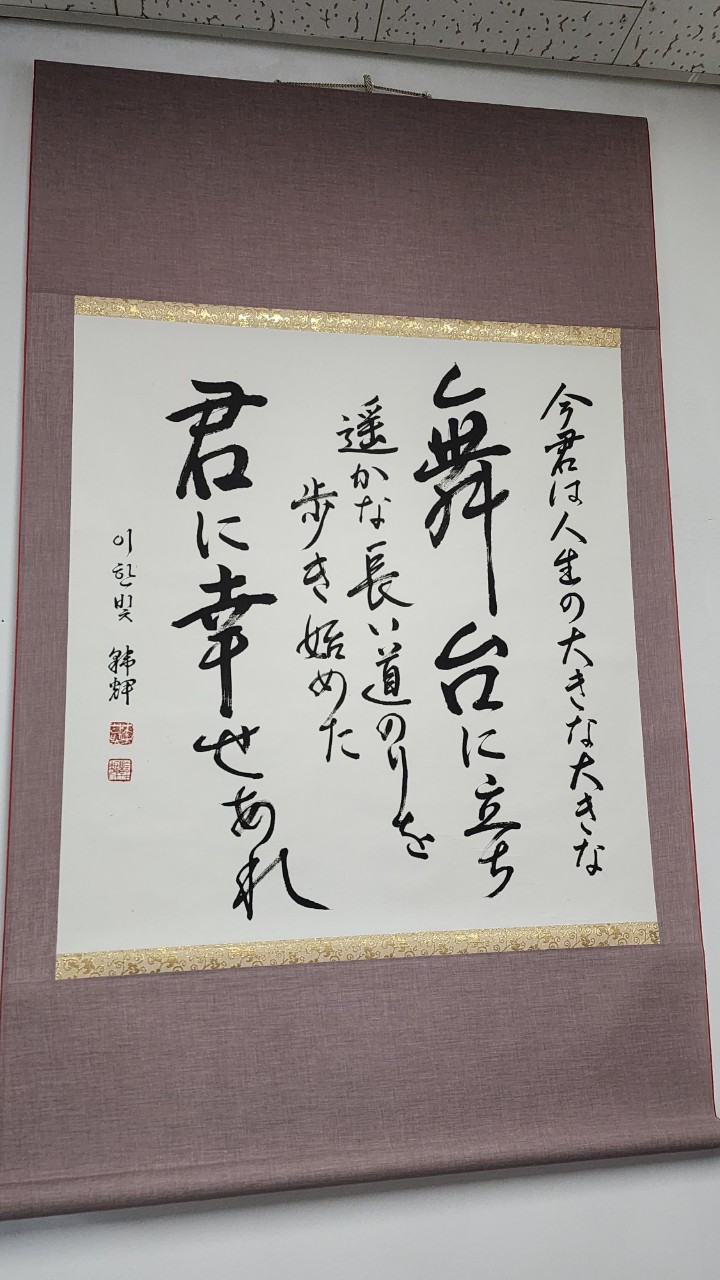 今君は人生の大きな大きな
舞台に立ち
遥かな長い道のりを
歩き始めた
君に幸せあれ
이한빛 韓輝